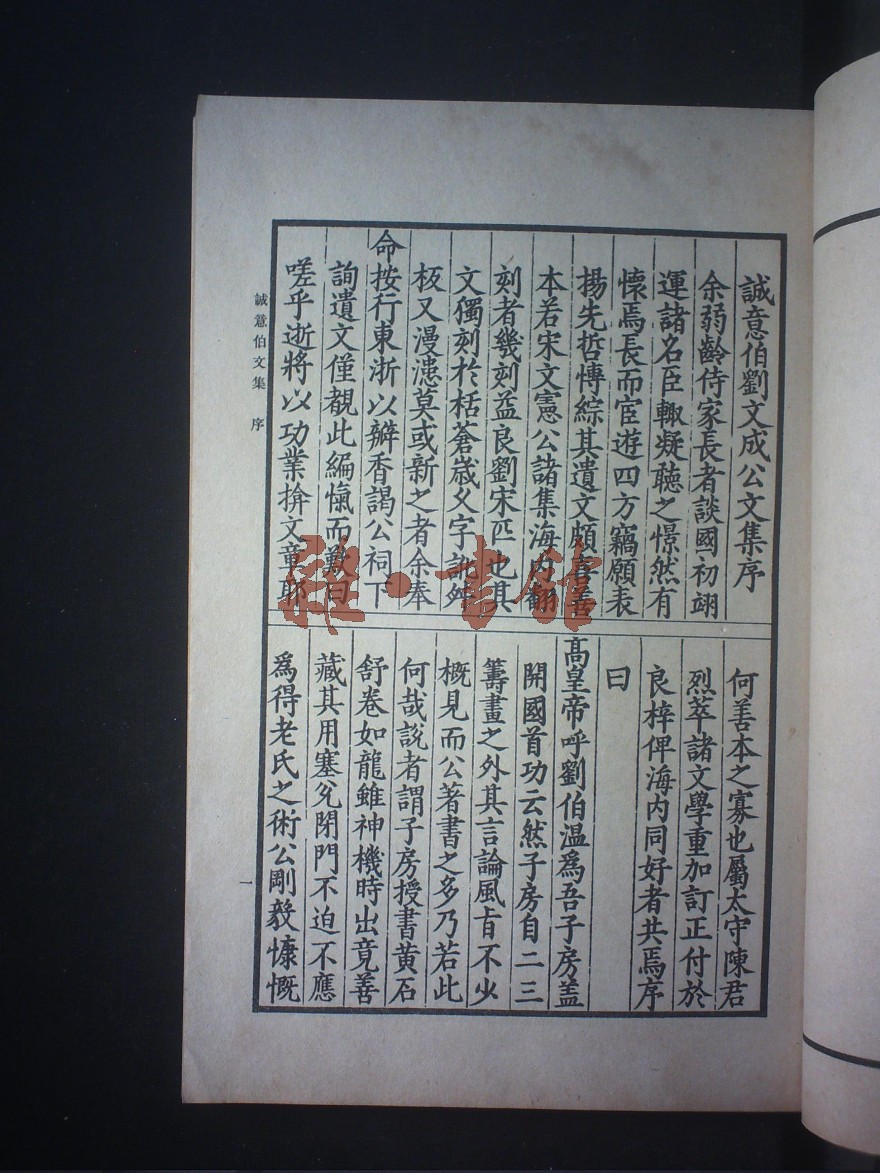 誠意伯劉文成公文集序
余弱齡侍家長者談國初翊
運諸名臣輙凝聽之憬然有
懷焉長而宦遊四方竊願表
揚先哲慱綜其遺文頗喜善
本若宋文憲公諸集海内翻
刻者幾刻益良劉宋匹也其
文獨刻於栝蒼嵗久字訛
板又漫漶莫或新之者余奉
命按行東浙以辦香謁公祠下
詢遺文僅覩此編愾而歎曰
嗟乎逝將以功業揜文章耶
何善本之寡也屬太守陳君
烈萃諸文學重加訂正付於
良梓俾海内同好者共焉序
曰
高皇帝呼劉伯温爲吾子房盖
開國首功云然子房自二三
籌畫之外其言論風㫖不少
概見而公著書之多乃若此
何哉說者謂子房授書黄石
舒卷如龍雖神機時出竟善
藏其用塞兊閉門不迫不應
爲得老氏之術公剛毅慷慨
誠意伯文集 序
一
雜·書館